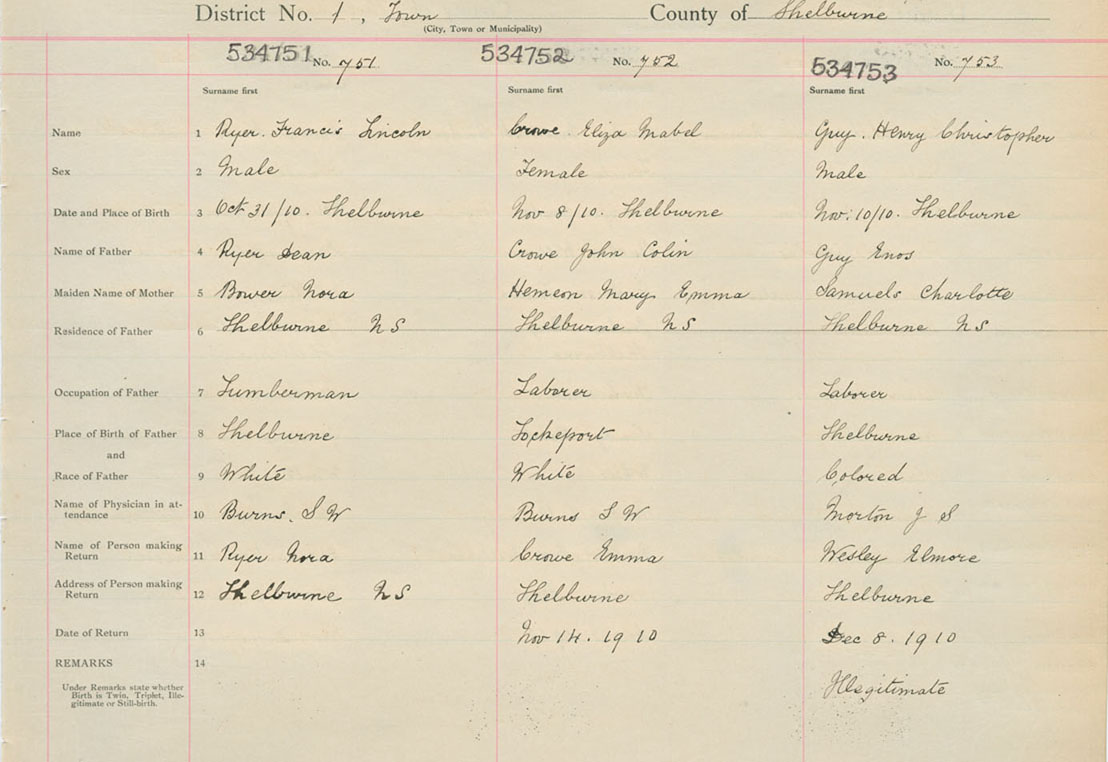 District No. 1, Town County of Shelburne
(City, Town or Municipality)
534751 No. 751 534752 No. 752 534753 No. 753
Surname first Surname first Surname first
Name 1 Ryer. Francis Lincoln Crowe Eliza Mabel Guy. Henry Christopher
Sex 2 Male Female Male
Date and Place of Birth 3 Oct 31/10. Shelburne Nov 8/10. Shelburne Nov. 10/10. Shelburne
Name of Father 4 Ryer Dean Crowe John Colin Guy Enos
Maiden Name of Mother 5 Bower Nora Hemeon Mary Emma Samuels Charlotte
Residence of Father 6 Shelburne NS Shelburne NS Shelburne NS
Occupation of Father 7 Lumberman Laborer Laborer
Place of Birth of Father 8 Shelburne Lockeport Shelburne
and
Race of Father 9 White White Colored
Name of Physician in at-
tendance 10 Burns. S W Burns S W Morton J S
Name of Person making
Return 11 Ryer Nora Crowe Emma Wesley Elmore
Address of Person making
Return 12 Shelburne NS Shelburne Shelburne
Date of Return 13 Nov 14. 1910 Dec 8. 1910
REMARKS 14
Under Remarks state whether
Birth is Twin, Triplet, Ille-
gitimate or Still-birth.
Illegitimate